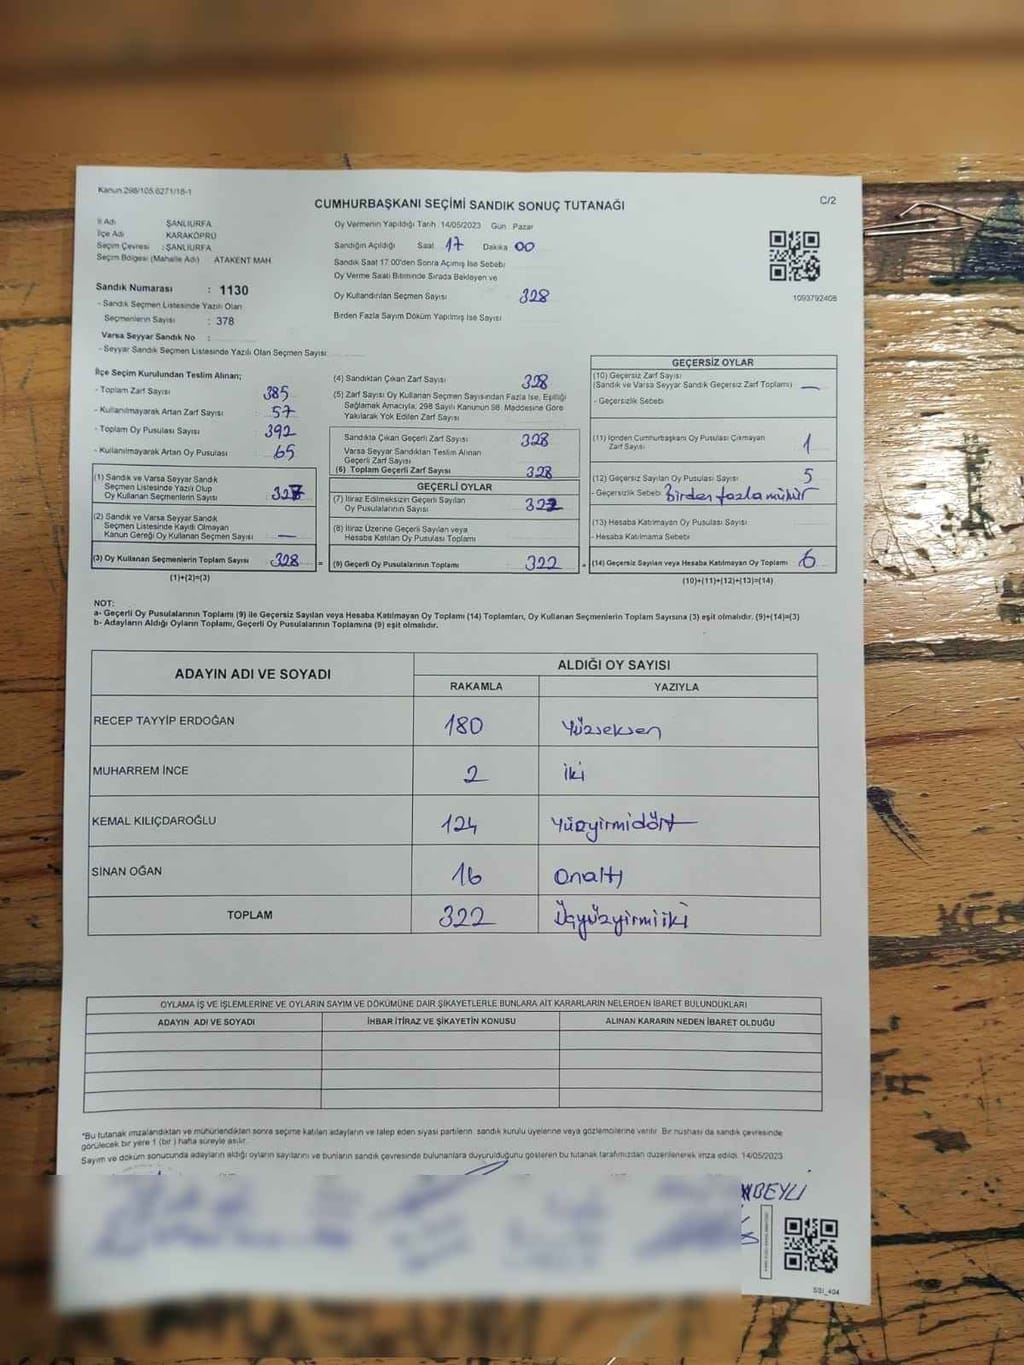 Kanun 298/105,6271/18-1
CUMHURBAŞKANI SEÇİMİ SANDIK SONUÇ TUTANAĞI
C/2
İl Adı ŞANLIURFA
İlçe Adı KARAKÖPRÜ
Seçim Çevresi : ŞANLIURFA
Seçim Bölgesi (Mahalle Adı) ATAKENT MAH
Sandık Numarası : 1130
- Sandık Seçmen Listesinde Yazılı Olan
Seçmenlerin Sayısı : 378
Varsa Seyyar Sandık No :
- Seyyar Sandık Seçmen Listesinde Yazılı Olan Seçmen Sayısı
Oy Vermenin Yapıldığı Tarih 14/05/2023 Gün Pazar
Sandığın Açıldığı Saat 17 Dakika 00
Sandık Saat 17:00'den Sonra Açılmış İse Sebebi
Oy Verme Saati Bitiminde Sırada Bekleyen ve
Oy Kullandırılan Seçmen Sayısı 328
Birden Fazla Sayım Döküm Yapılmış İse Sayısı
1093792408
İlçe Seçim Kurulundan Teslim Alınan;
- Toplam Zarf Sayısı 385
- Kullanılmayarak Artan Zarf Sayısı 57
- Toplam Oy Pusulası Sayısı 392
- Kullanılmayarak Artan Oy Pusulası 65
(1) Sandık ve Varsa Seyyar Sandık
Seçmen Listesinde Yazılı Olup
Oy Kullanan Seçmenlerin Sayısı
(2) Sandık ve Varsa Seyyar Sandık
Seçmen Listesinde Kaydı Olmayan
Kanun Gereği Oy Kullanan Seçmen Sayısı —
(3) Oy Kullanan Seçmenlerin Toplam Sayısı 328
(1)+(2)=(3)
(4) Sandıktan Çıkan Zarf Sayısı 328
(5) Zarf Sayısı Oy Kullanan Seçmen Sayısından Fazla İse, Eşitliği
Sağlamak Amacıyla; 298 Sayılı Kanunun 98. Maddesine Göre
Yakılarak Yok Edilen Zarf Sayısı
Sandıkta Çıkan Geçerli Zarf Sayısı 328
Varsa Seyyar Sandıktan Teslim Alınan
Geçerli Zarf Sayısı
(6) Toplam Geçerli Zarf Sayısı 328
GEÇERLİ OYLAR
(7) İtiraz Edilmeksizin Geçerli Sayılan
Oy Pusulalarının Sayısı 322
(8) İtiraz Üzerine Geçerli Sayılan veya
Hesaba Katılan Oy Pusulası Toplamı
= (9) Geçerli Oy Pusulalarının Toplamı 322
GEÇERSİZ OYLAR
(10) Geçersiz Zarf Sayısı
(Sandık ve Varsa Seyyar Sandık Geçersiz Zarf Toplamı) —
- Geçersizlik Sebebi
(11) İçinden Cumhurbaşkanı Oy Pusulası Çıkmayan
Zarf Sayısı 1
(12) Geçersiz Sayılan Oy Pusulası Sayısı 5
- Geçersizlik Sebebi Birden fazla mühür
(13) Hesaba Katılmayan Oy Pusulası Sayısı
- Hesaba Katılmama Sebebi
+ (14) Geçersiz Sayılan veya Hesaba Katılmayan Oy Toplamı 6
(10)+(11)+(12)+(13)=(14)
NOT:
a- Geçerli Oy Pusulalarının Toplamı (9) ile Geçersiz Sayılan veya Hesaba Katılmayan Oy Toplamı (14) Toplamları, Oy Kullanan Seçmenlerin Toplam Sayısına (3) eşit olmalıdır. (9)+(14)=(3)
b- Adayların Aldığı Oyların Toplamı, Geçerli Oy Pusulalarının Toplamına (9) eşit olmalıdır.
ADAYIN ADI VE SOYADI ALDIĞI OY SAYISI
RAKAMLA YAZIYLA
RECEP TAYYİP ERDOĞAN 180 Yüzseksen
MUHARREM İNCE 2 iki
KEMAL KILIÇDAROĞLU 124 Yüzyirmidört
SİNAN OĞAN 16 Onaltı
TOPLAM 322 Üçyüzyirmiiki
OYLAMA İŞ VE İŞLEMLERİNE VE OYLARIN SAYIM VE DÖKÜMÜNE DAİR ŞİKAYETLERLE BUNLARA AİT KARARLARIN NELERDEN İBARET BULUNDUKLARI
ADAYIN ADI VE SOYADI İHBAR İTİRAZ VE ŞİKAYETİN KONUSU ALINAN KARARIN NEDEN İBARET OLDUĞU
*Bu tutanak imzalandıktan ve mühürlendikten sonra seçime katılan adayların ve talep eden siyasi partilerin sandık kurulu üyelerine veya gözlemcilerine verilir. Bir nüshası da sandık çevresinde
görülecek bir yere 1 (bir ) hafta süreyle asılır.
Sayım ve döküm sonucunda adayların aldığı oyların sayılarını ve bunların sandık çevresinde bulunanlara duyurulduğunu gösteren bu tutanak tarafımızdan düzenlenerek imza edildi. 14/05/2023
BEYLİ
SSI_404